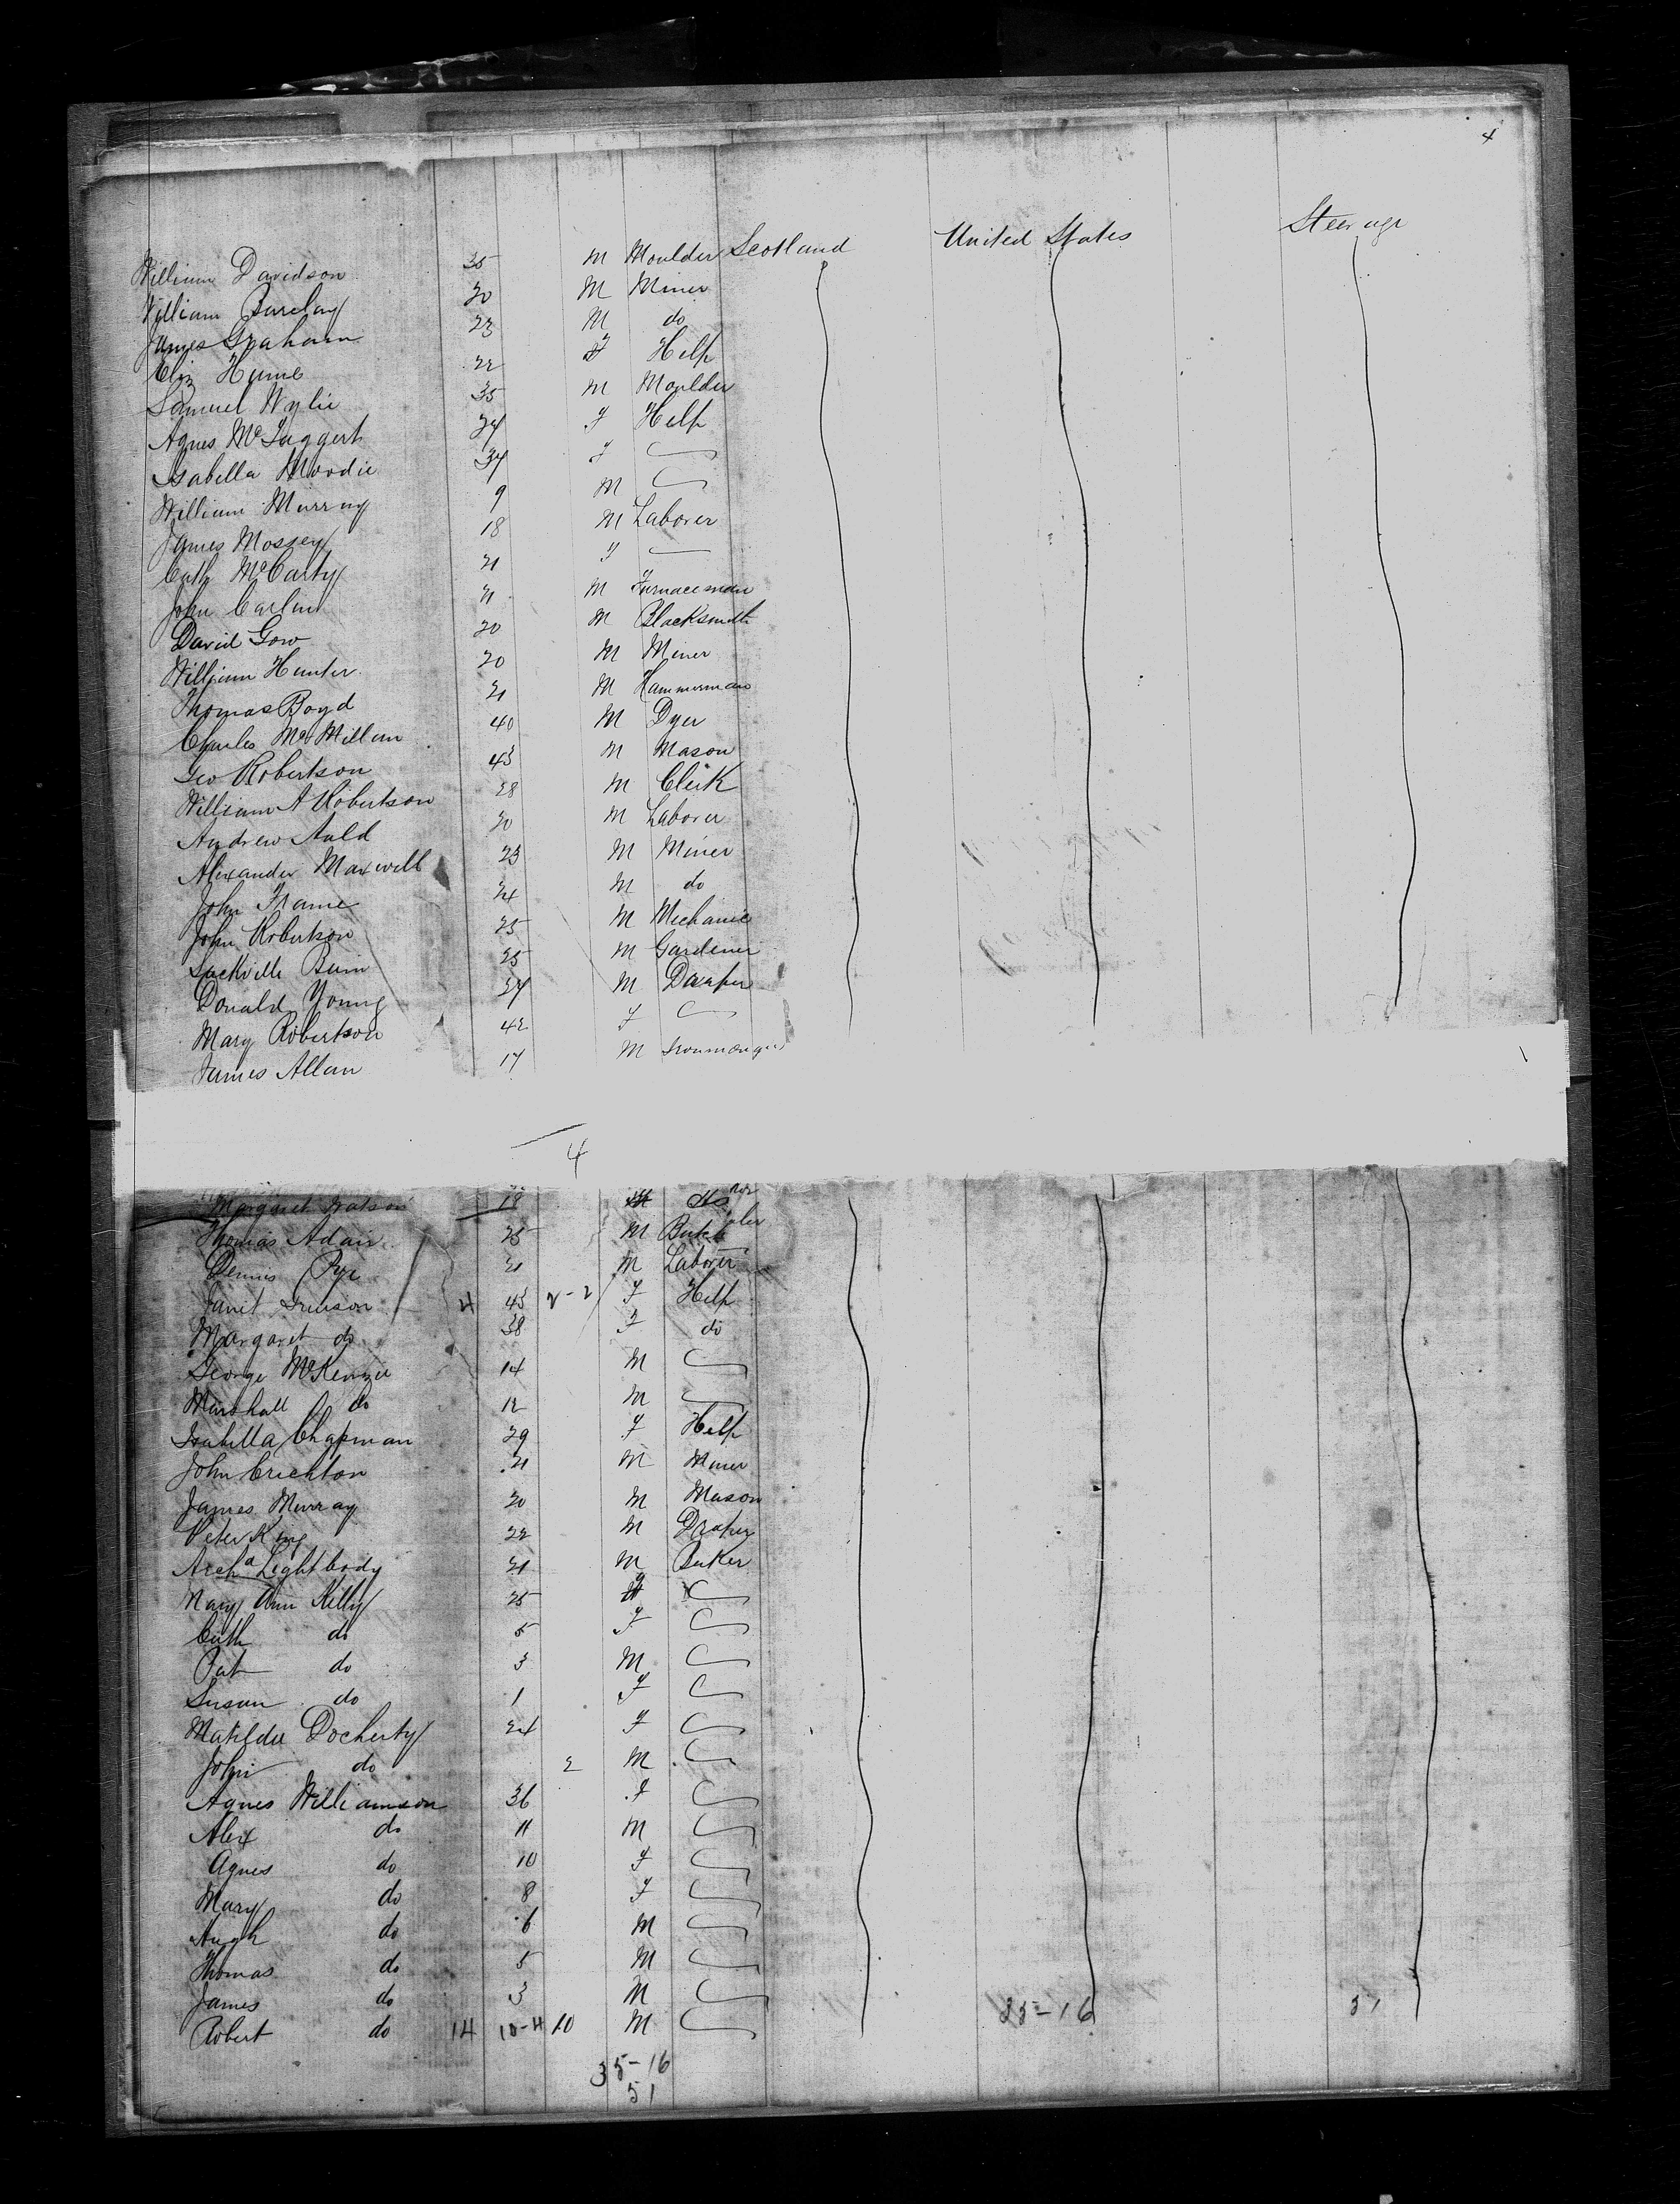 4
William Davidson 35 M Moulder Scotland United States Steerage
William Barclay 20 M Miner
James Graham 23 M do
Eliz Hume 22 F Help
Samuel Wylie 35 M Moulder
Agnes McTaggert 24 F Help
Isabella Moodie 34 F
William Murray 9 M
James Mossey 18 M Laborer
Cath McCarty 21 F
John Carlin 21 M Furnaceman
David Gow 20 M Blacksmith
William Hunter 20 M Miner
Thomas Boyd 21 M Hammerman
Charles McMillan 40 M Dyer
Geo Robertson 43 M Mason
William A Robertson 28 M Clerk
Andrew Auld 20 M Laborer
Alexander Maxwell 23 M Miner
John Frame 24 M do
John Robertson 25 M Mechanic
Sackville 25 M Gardener
Donald Young 24 M Draper
Mary Robertson 42 F
James Allan 17 M Ironmonger
4
Margaret Watson 18
Thomas Adair 25 M
Dennis Pye 21 M Laborer
Janet 4 43 2-2 F Help
Margaret do 38 F do
George McKenzie 14 M
Marshall do 12 M
Isabella Chapman 29 F Help
John Crichton 21 M Miner
James Murray 20 M Mason
Peter King 22 M Draper
Archd Lightbody 21 M Baker
Mary Ann Kelly 25 F
Cath do 5 F
Pat do 3 M
Susan do 1 F
Matilda Docherty 24 F
John do 2 M
Agnes Williamson 36 F
Alex do 11 M
Agnes do 10 F
Mary do 8 F
Hugh do 6 M
Thomas do 5 M
James do 3 M
Robert do 14 10-4 10 M 35-16 51
35-16
51